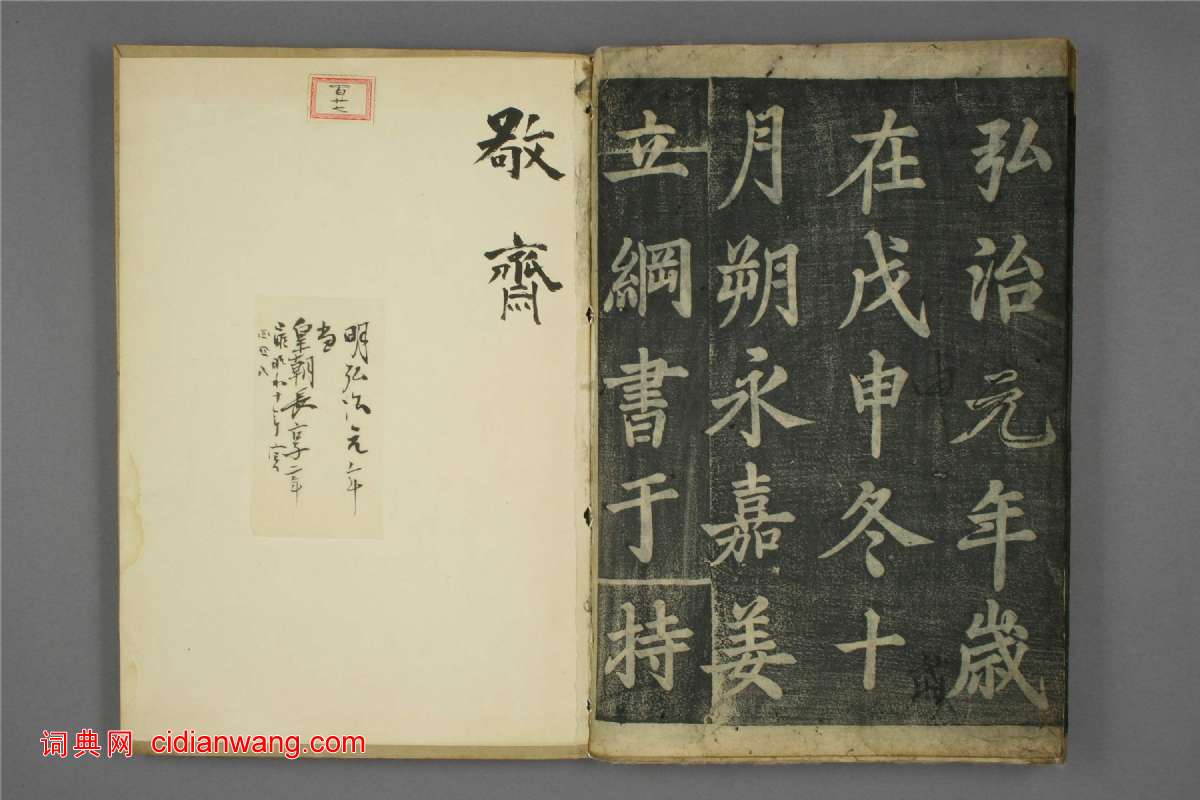 弘治元年歲
在戊申冬十
月朔永嘉姜
立綱書于
持
敬齋
百廿七
明弘治元年
当
皇朝長享二年
词典网 cidianwang.com